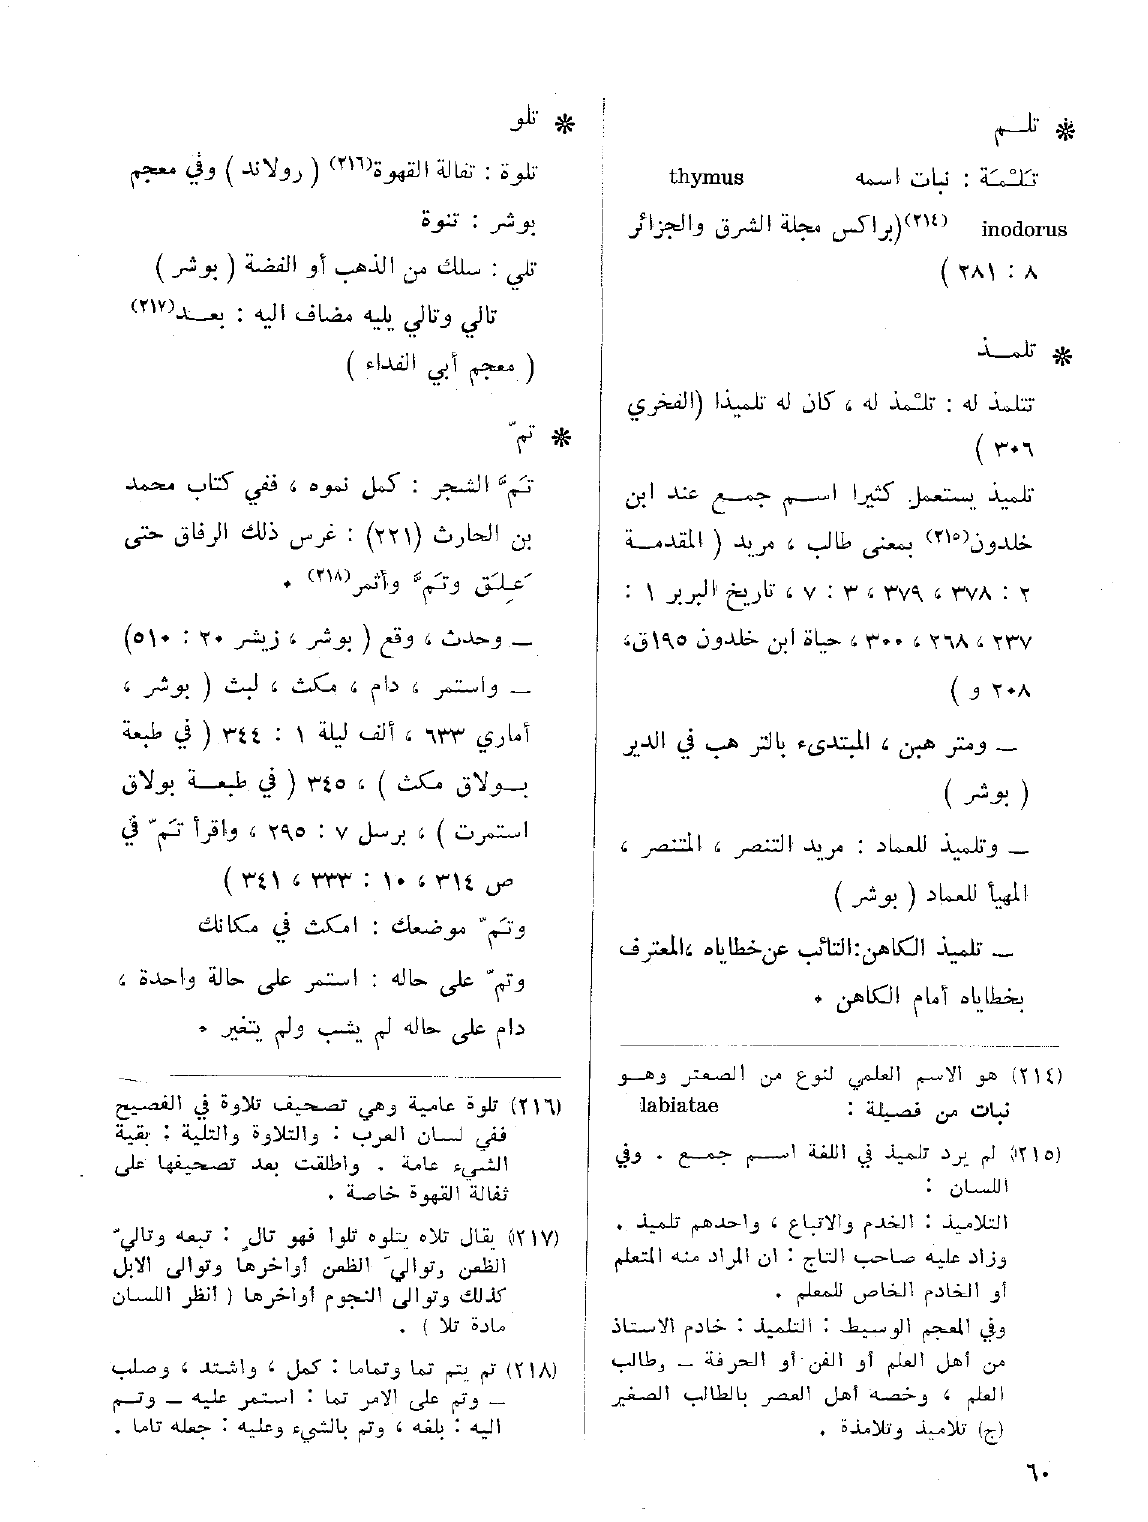 ✻ تلـــم
تَلْمَة : نبات اسمه thymus
inodorus (٢١٤)(براكس مجلة الشرق والجزائر
٨ : ٢٨١ )
✻ تلمـــذ
تتلمذ له : تلْمذ له ، كان له تلميذا (الفخري
٣٠٦ )
تلميذ يستعمل كثيرا اسم جمع عند ابن
خلدون(٢١٥) بمعنى طالب ، مريد ( المقدمة
٢ : ٣٧٨ ، ٣٧٩ ، ٣ : ٧ ، تاريخ البربر ١ :
٢٣٧ ، ٢٦٨ ، ٣٠٠ ، حياة ابن خلدون ١٩٥ق،
٢٠٨ و )
ــ ومتر هبن ، المبتدىء بالتر هب في الدير
( بوشر )
ــ وتلميذ للعماد : مريد التنصر ، المتنصر ،
المهيأ للعماد ( بوشر )
ــ تلميذ الكاهن:التائب عن خطاياه ،المعترف
بخطاياه أمام الكاهن .
(٢١٤) هو الاسم العلمي لنوع من الصعتر وهــو
نبات من فصيلة : labiatae
(٢١٥) لم يرد تلميذ في اللغة اسم جمع . وفي
اللسان :
التلاميذ : الخدم والاتباع ، واحدهم تلميذ .
وزاد عليه صاحب التاج : ان المراد منه المتعلم
أو الخادم الخاص للمعلم .
وفي المعجم الوسيط : التلميذ : خادم الاستاذ
من أهل العلم أو الفن أو الحرفة ــ وطالب
العلم ، وخصه أهل العصر بالطالب الصغير
(ج) تلاميذ وتلامذة .
✻ تلو
تلوة : تفالة القهوة(٢١٦) ( رولاند ) وفي معجم
بوشر : تنوة
تلي : سلك من الذهب أو الفضة ( بوشر )
تالي وتالي يليه مضاف اليه : بعــد(٢١٧)
( معجم أبي الفداء )
✻ تمّ
تَمَّ الشجر : كمل نموه ، ففي كتاب محمد
بن الحارث (٢٢١) : غرس ذلك الرفاق حتى
عَلِق وتَمَّ وأثمر(٢١٨) .
ــ وحدث ، وقع ( بوشر ، زيشر ٢٠ : ٥١٠)
ــ واستمر ، دام ، مكث ، لبث ( بوشر ،
أماري ٦٣٣ ، ألف ليلة ١ : ٣٤٤ ( في طبعة
بــولاق مكث ) ، ٣٤٥ ( في طبعــة بولاق
استمرت ) ، برسل ٧ : ٢٩٥ ، واقرأ تَمّ في
ص ٣١٤ ، ١٠ : ٣٣٣ ، ٣٤١ )
وتَمّ موضعك : امكث في مكانك
وتمّ على حاله : استمر على حالة واحدة ،
دام على حاله لم يشب ولم يتغير .
(٢١٦) تلوة عامية وهي تصحيف تلاوة في الفصيح
ففي لسان العرب : والتلاوة والتلية : بقية
الشيء عامة . واطلقت بعد تصحيفها على
ثفالة القهوة خاصة .
(٢١٧) يقال تلاه يتلوه تلوا فهو تالٍ : تبعه وتاليّ
الظعن وتواليَ الظعن أواخرها وتوالى الابل
كذلك وتوالى النجوم أواخرها ( انظر اللسان
مادة تلا ) .
(٢١٨) تم يتم تما وتماما : كمل ، واشتد ، وصلب
ــ وتم على الامر تما : استمر عليه ــ وتــم
اليه : بلغه ، وتم بالشيء وعليه : جعله تاما .
٦٠